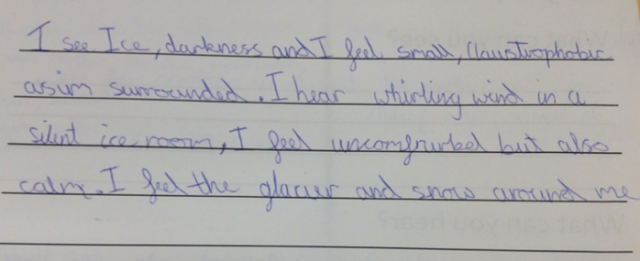 I see Ice, darkness and I feel small, Claustrophobic
as im surrounded. I hear whirling wind in a
silent ice room, I feel uncomfrurbel but also
calm. I feel the glacier and snow around me